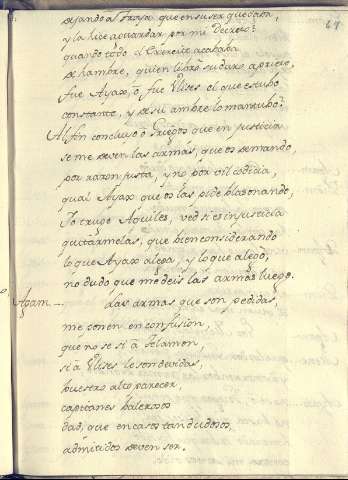 67
dejando al Troya que en su ser quedaba,
y la hice aguardar por mi Decreto?
quando todo el Exercito acababa
de hambre, quien libró su duro aprieto,
fue Ayax, o fue Ulises el que estubo
constante, y de su ambre lo mantubo?
Al fin concluyo o Griegos que en justicia
se me deven las armas, que os demando,
por razon justa, y no por vil codicia,
qual Ayax que os las pide blasonando,
Yo truge Aquiles, ved si es injusticia
quitarmelas, que bien considerando
lo que Ayax alega, y lo que alego,
no dudo que me deis las armas luego.
Agam. — Las armas que son pedidas,
me ponen en confusion,
que no se si a Telamon,
si a Ulises le son devidas,
vuestro alto parecer
capitanes balerosos
dad, que en casos tan dudosos
admitidos deven ser.